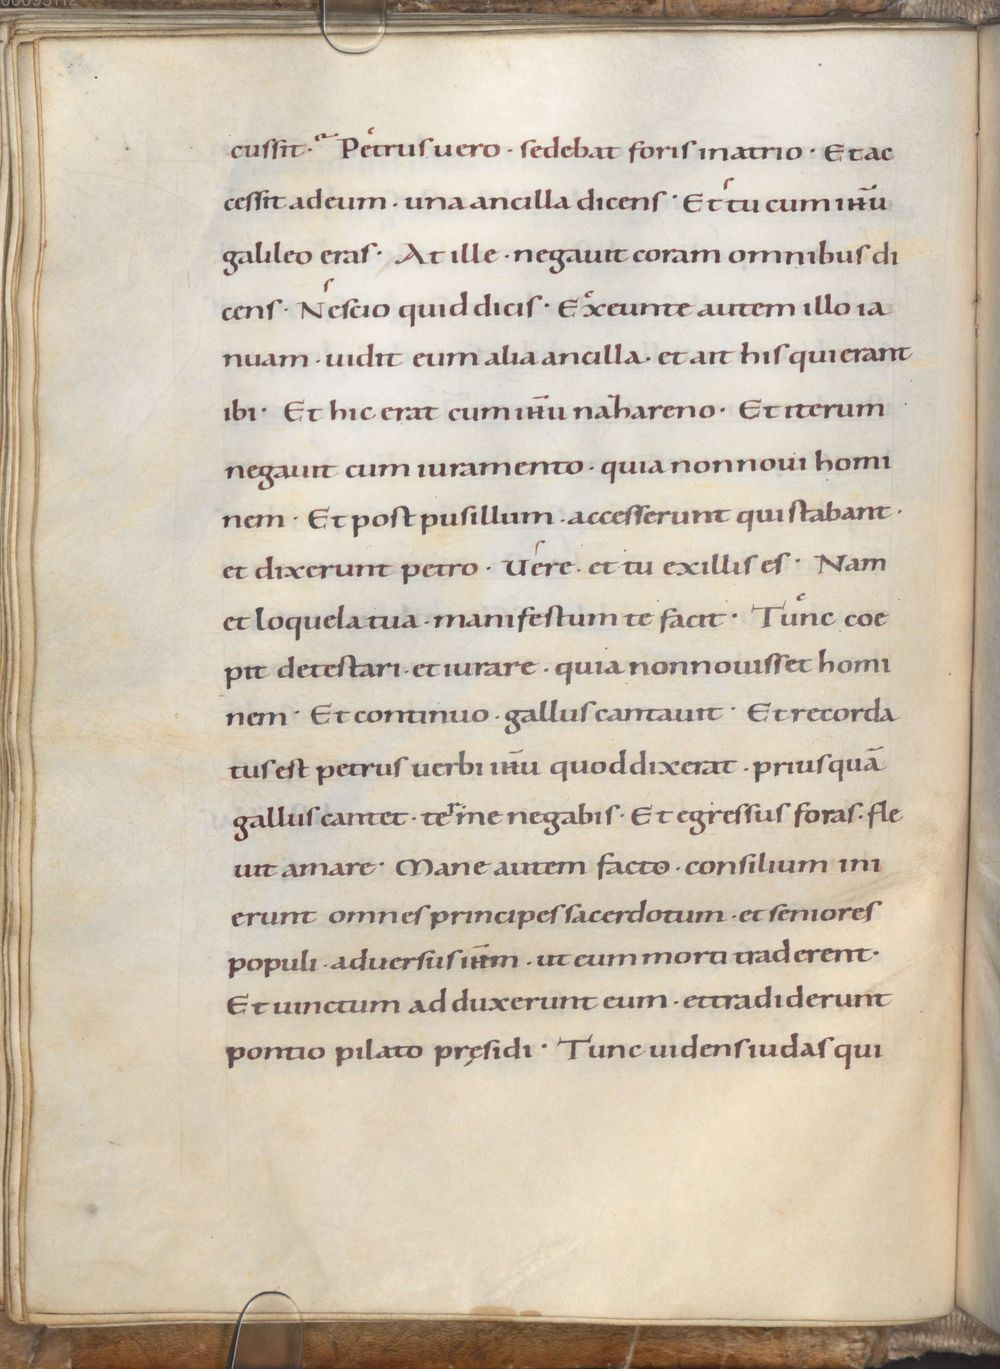 cussit· Petrus uero · sedebat foris inatrio · Et ac
cessit adeum · una ancilla dicens · Et tu cum ih̄u
galileo eras · At ille · negauit coram omnibus di
cens · Nescio quid dicis · Exeunte autem illo ia
nuam · uidit eum alia ancilla · et ait his qui erant
ibi · Et hic erat cum ih̄u nazareno · Et iterum
negauit cum iuramento · quia non noui homi
nem · Et post pusillum · accesserunt qui stabant ·
et dixerunt petro · Uere · et tu exillis es · Nam
et loquela tua · manifestum te facit · Tunc coe
pit detestari · et iurare · quia non nouisset homi
nem · Et continuo · gallus cantauit · Et recorda
tus est petrus uerbi ih̄u quod dixerat · priusquā
gallus cantet · ter me negabis · Et egressus foras · fle
uit amare · Mane autem facto · consilium ini
erunt omnes principes sacerdotum · et seniores
populi · aduersus ih̄m · ut eum morti traderent ·
Et uinctum adduxerunt eum · et tradiderunt
pontio pilato pręsidi · Tunc uidens iudas qui